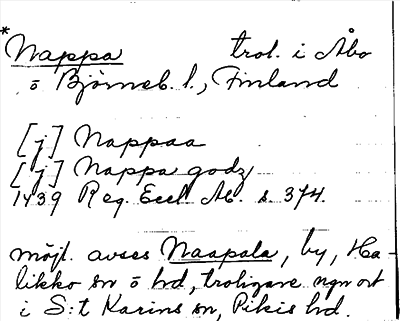 * Nappa trol. i Åbo
o Björneb. l., Finland
[j] Nappaa
[j] Nappa godz
1439 Reg. Eccl. Ab. s. 374.
möjl. avses Naapala, by, Ha-
likko sn o hd, troligare ngn ort
i S:t Karins sn, Pikis hd.